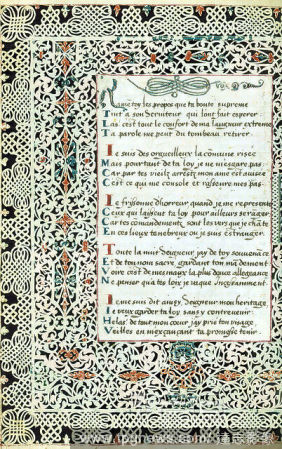 toy les propos que ta bonte supreme
Tint a son Serviteur qui l'ont fait esperer:
Las c'est tout le confort de ma langueur extreme
Ta parole me peut du tombeau retirer.
Ie suis des orgueilleux la comune risee
Mais pourtant de ta loy, ie ne m'esgare pas:
Car par tes vieilz arrestz mon ame est
C'est ce qui me console et r'asseure mes pas.
Ie frissonne d'horreur, quand ie me represente
Ceux qui laissent ta loy pour ailleurs
Car tes comandements sont les vers que ie chãte
En ces lieux tenebreux ou ie suis estranger.
Toute la nuit Seigneur j'ay de toy souvenãce
Et de ton nom sacre gardant ton
Voire c'est de mes maux la plus douce allegeance
De penser qua tes loix ie vaque
Ie me suis dit aussy Seigneur mon heritage
Ie veux garder ta loy sans y contrevenir
Helas de tout mon coeur j'ay prie ton visage
Veilles en m'exauçant ta promesse tenir.